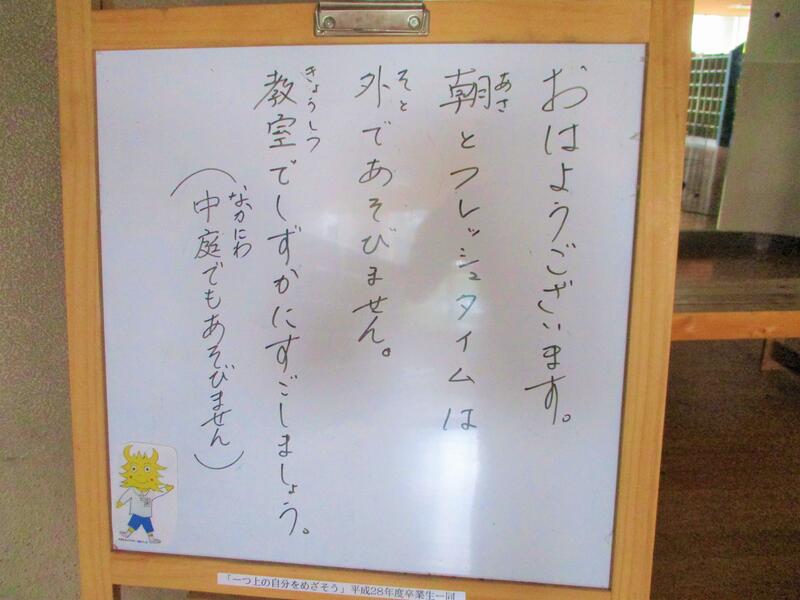 おはようございます。
あさ
朝とフレッシュタイムは
そと
外であそびません。
きょうしつ
教室でしずかにすごしましょう。
なかにわ
(中庭でもあそびません)
「一つ上の自分をめざそう」平成28年度卒業生一同